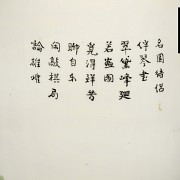 名園結侶
伴琴書
翠黛峰迴
若畫圖
覓得群芳
聊自樂
閑敲棋局
論雄雌